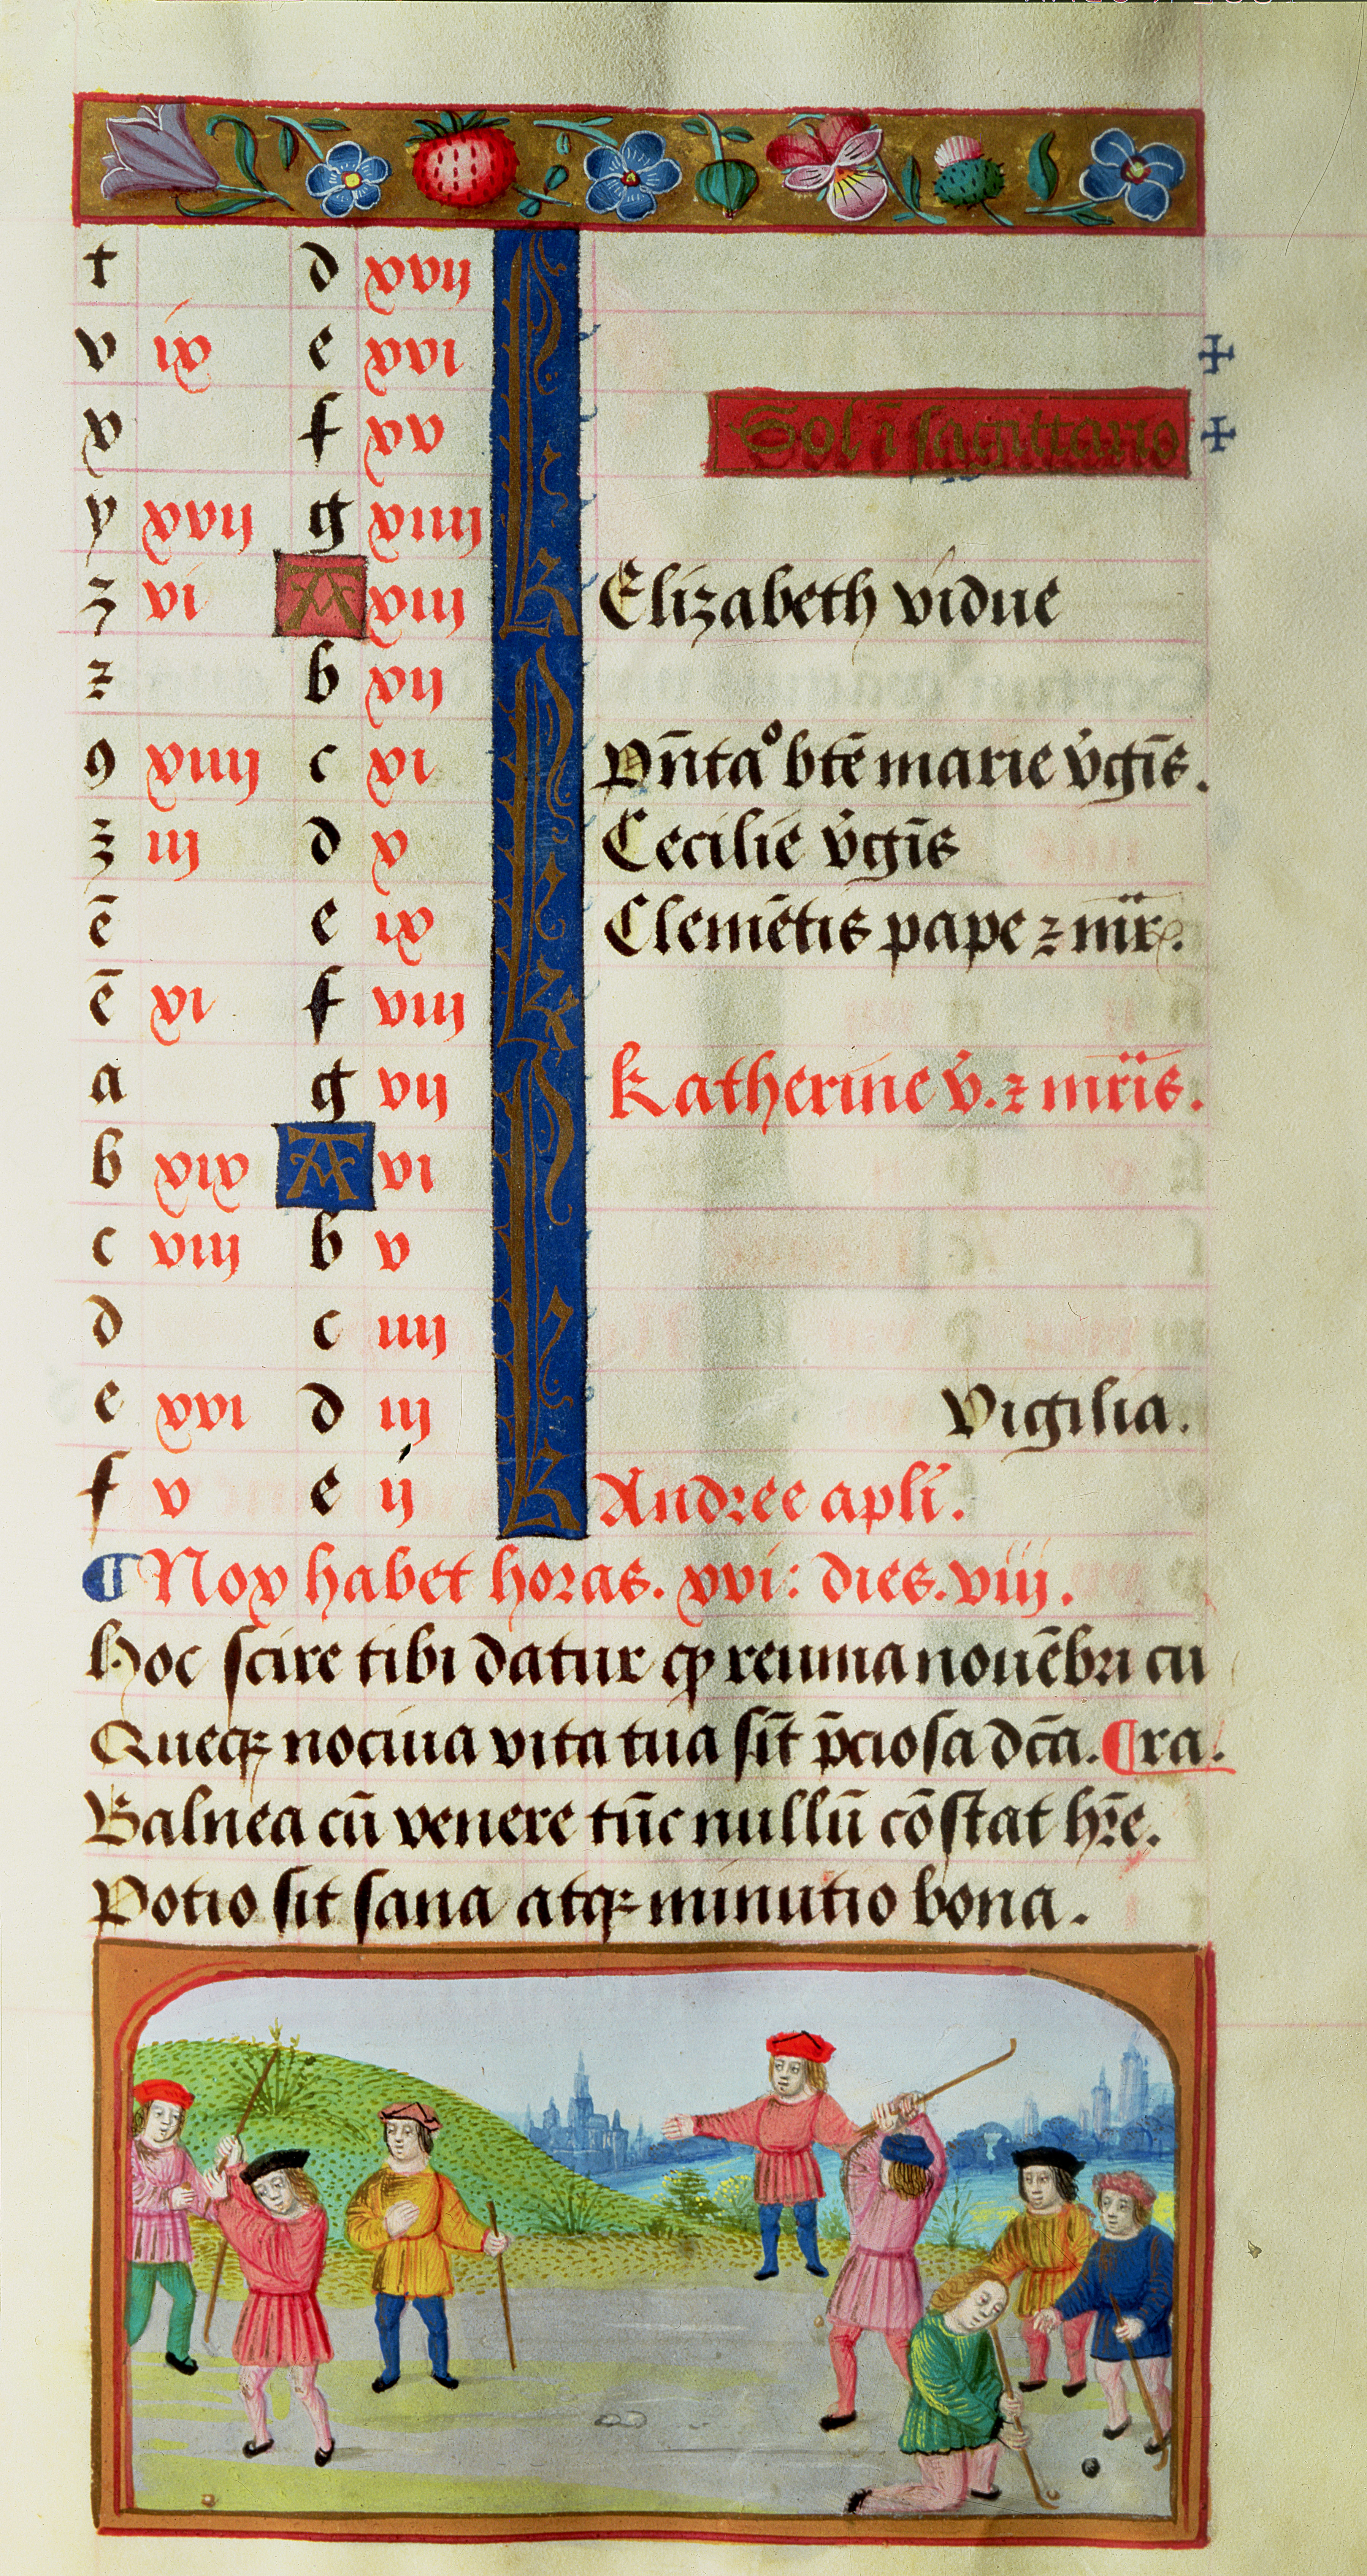 t d xvij kl
v ix e xvi
x f xv Sol ī sagittario
y xvij g xiiij
z vi A xiij Elizabeth vidue
z b xij kl
9 xiiij c xi Pn̄taº btē marie v̄gīs.
z iij d x Cecilie v̄gīs
ē e ix Clemētis pape z mr̄.
ē xi f viij
a g vij kl Katherine v̄. z mr̄is.
b xix A vi
c viij b v
d c iiij
e xvi d iij Vigilia.
f v e ij Andree apli̅.
¶ Nox habet horas. xvi: dies. viij.
Hoc scire tibi datur ꝙ reuma nouēbri cu
Queqꝫ nociua vita tua sīt p̄ciosa dc̄a. ¶ ra.
Balnea cū venere tūc nullū cōstat hr̄e.
Potio sit sana atqꝫ minutio bona.